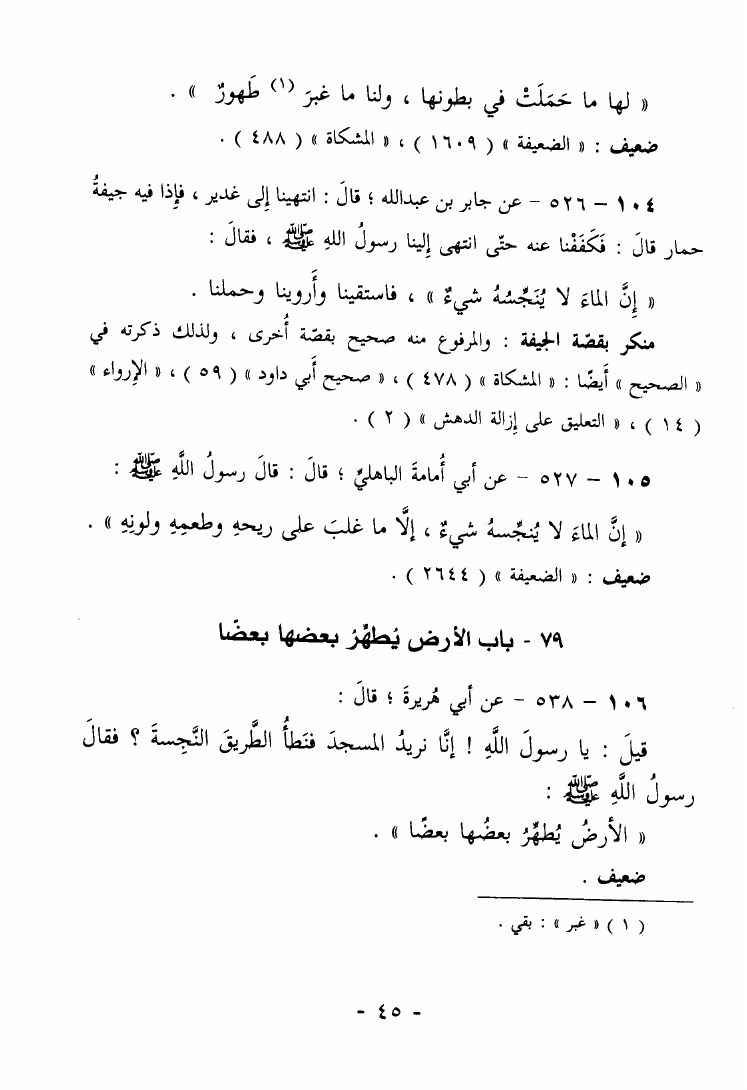 « لها ما حَمَلَتْ في بطونها ، ولنا ما غبرَ (١) طَهورٌ » .
ضعيف : « الضعيفة » ( ١٦٠٩ ) ، « المشكاة » ( ٤٨٨ ) .
١٠٤ – ٥٢٦ – عن جابر بن عبدالله ؛ قالَ : انتهينا إلى غدير ، فإذا فيه جيفةُ
حمار قالَ : فَكَفَفْنا عنه حتّى انتهى إلينا رسولُ اللهِ ﷺ ، فقالَ :
« إنَّ الماءَ لا يُنَجِّسُهُ شيءٌ » ، فاستقينا وأَروينا وحملنا .
منكر بقصّة الجيفة : والمرفوع منه صحيح بقصّة أُخرى ، ولذلك ذكرته في
« الصحيح » أيضًا : « المشكاة » ( ٤٧٨ ) ، « صحيح أبي داود » ( ٥٩ ) ، « الإرواء »
( ١٤ ) ، « التعليق على إزالة الدهش » ( ٢ ) .
١٠٥ – ٥٢٧ – عن أبي أُمامةَ الباهليِّ ؛ قالَ : قالَ رسولُ اللَّهِ ﷺ :
« إنَّ الماءَ لا يُنجِّسهُ شيءٌ ، إلَّا ما غلبَ على ريحهِ وطعمِهِ ولونِهِ » .
ضعيف : « الضعيفة » ( ٢٦٤٤ ) .
٧٩ - باب الأرض يُطهِّرُ بعضها بعضًا
١٠٦ – ٥٣٨ – عن أبي هُريرةَ ؛ قالَ :
قيلَ : يا رسولَ اللَّهِ ! إنَّا نريدُ المسجدَ فنَطأُ الطَّريقَ النَّجِسةَ ؟ فقالَ
رسولُ اللَّهِ ﷺ :
« الأرضُ يُطهِّرُ بعضُها بعضًا » .
ضعيف .
( ١ ) « غبر » : بقي .
- ٤٥ -